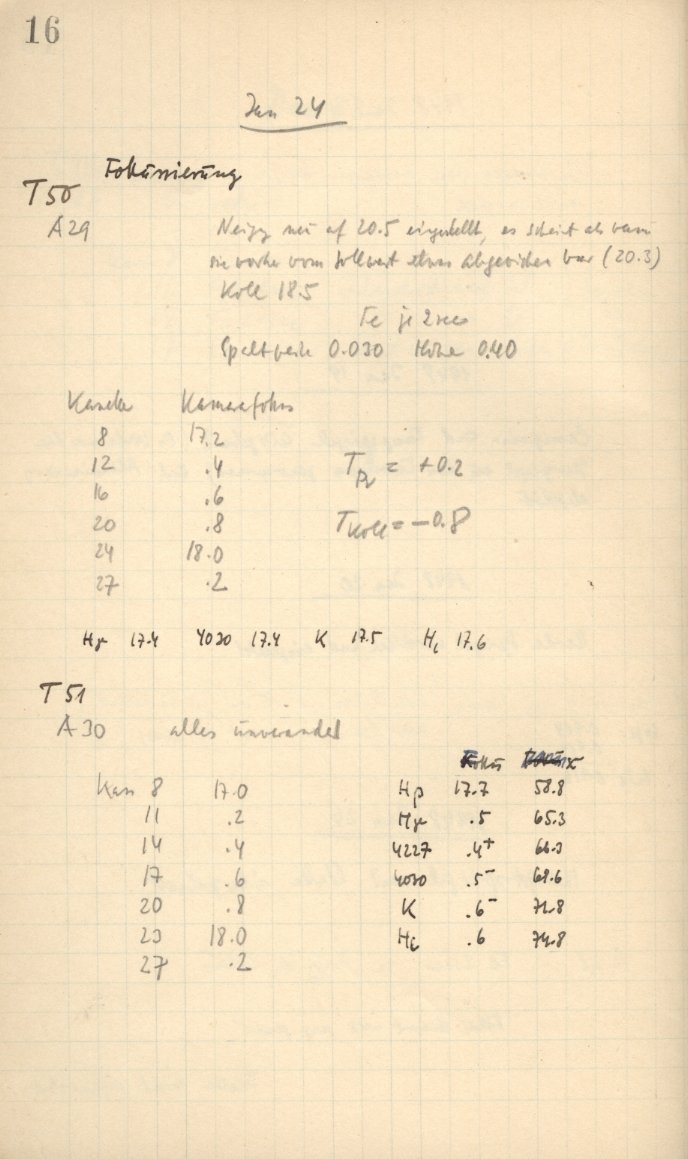 16
Jan 24
Fokussierung
T50
A29 Neigg neu auf 20.5 eingestellt, es scheint als wenn
sie vorher vom Sollwert etwas abgewichen war (20.3)
Koll 18.5
Fe je 2 sec
Spaltweite 0.030 Höhe 0.40
Kassette Kamerafokus
8 17.2
12 .4
16 .6
20 .8
24 18.0
27 .2
= +0.2
T Koll = -0.8
Hγ 17.4 4030 17.4 K 17.5 17.6
T51
A30 alles unverändert
Fokus
Kass 8 17.0
11 .2
14 .4
17 .6
20 .8
23 18.0
27 .2
Hβ 17.7 58.8
Hγ .5 65.3
4227 .4+ 66.3
4030 .5- 69.6
K .6- 72.8
.6 74.8